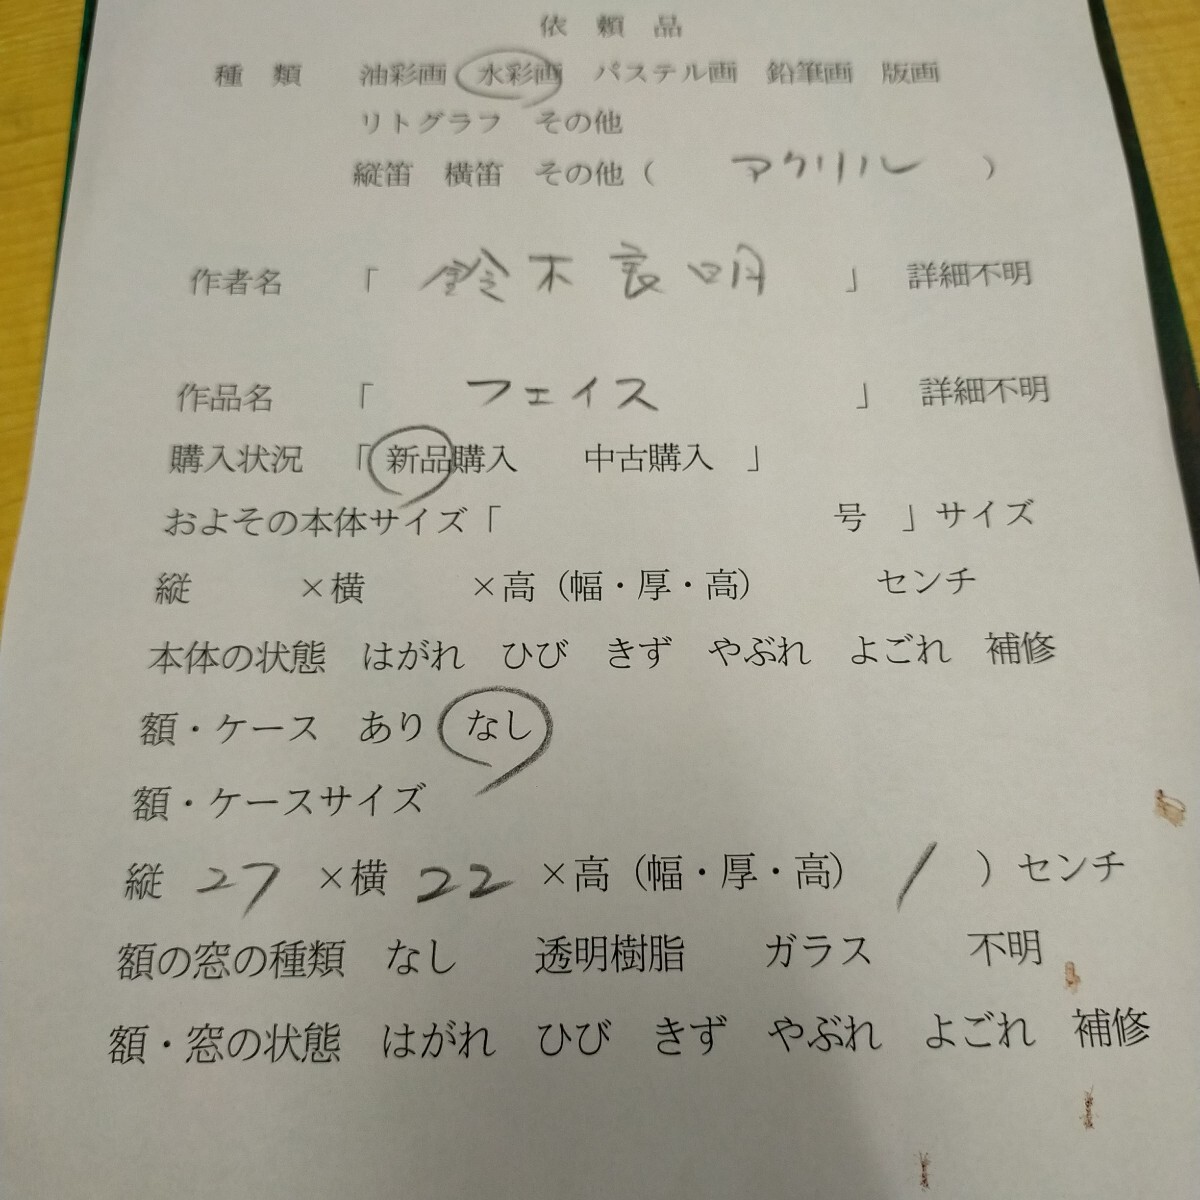 依頼品
種類 油彩画 水彩画 パステル画 鉛筆画 版画
リトグラフ その他
縦笛 横笛 その他( アクリル )
作者名 「 鈴木良明 」 詳細不明
作品名 「 フェイス 」 詳細不明
購入状況 「 新品購入 中古購入 」
およその本体サイズ「 号 」サイズ
縦 ×横 ×高(幅・厚・高) センチ
本体の状態 はがれ ひび きず やぶれ よごれ 補修
額・ケース あり なし
額・ケースサイズ
縦 27 ×横 22 ×高(幅・厚・高) 1 )センチ
額の窓の種類 なし 透明樹脂 ガラス 不明
額・窓の状態 はがれ ひび きず やぶれ よごれ 補修